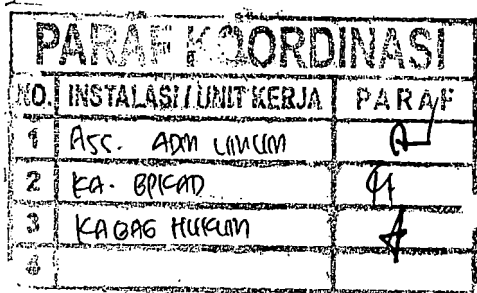 PARAF KOORDINASI
NO. INSTALASI / UNIT KERJA PARAF
1 Ass. ADM UMUM
2 KA. BPKAD
3 KABAG HUKUM
4